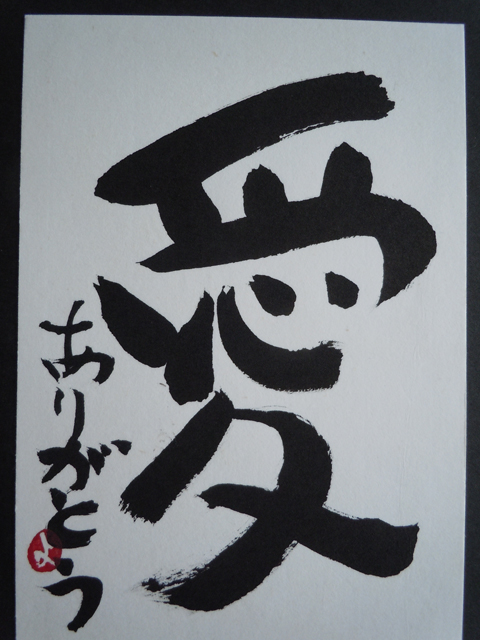 愛
ありがとう